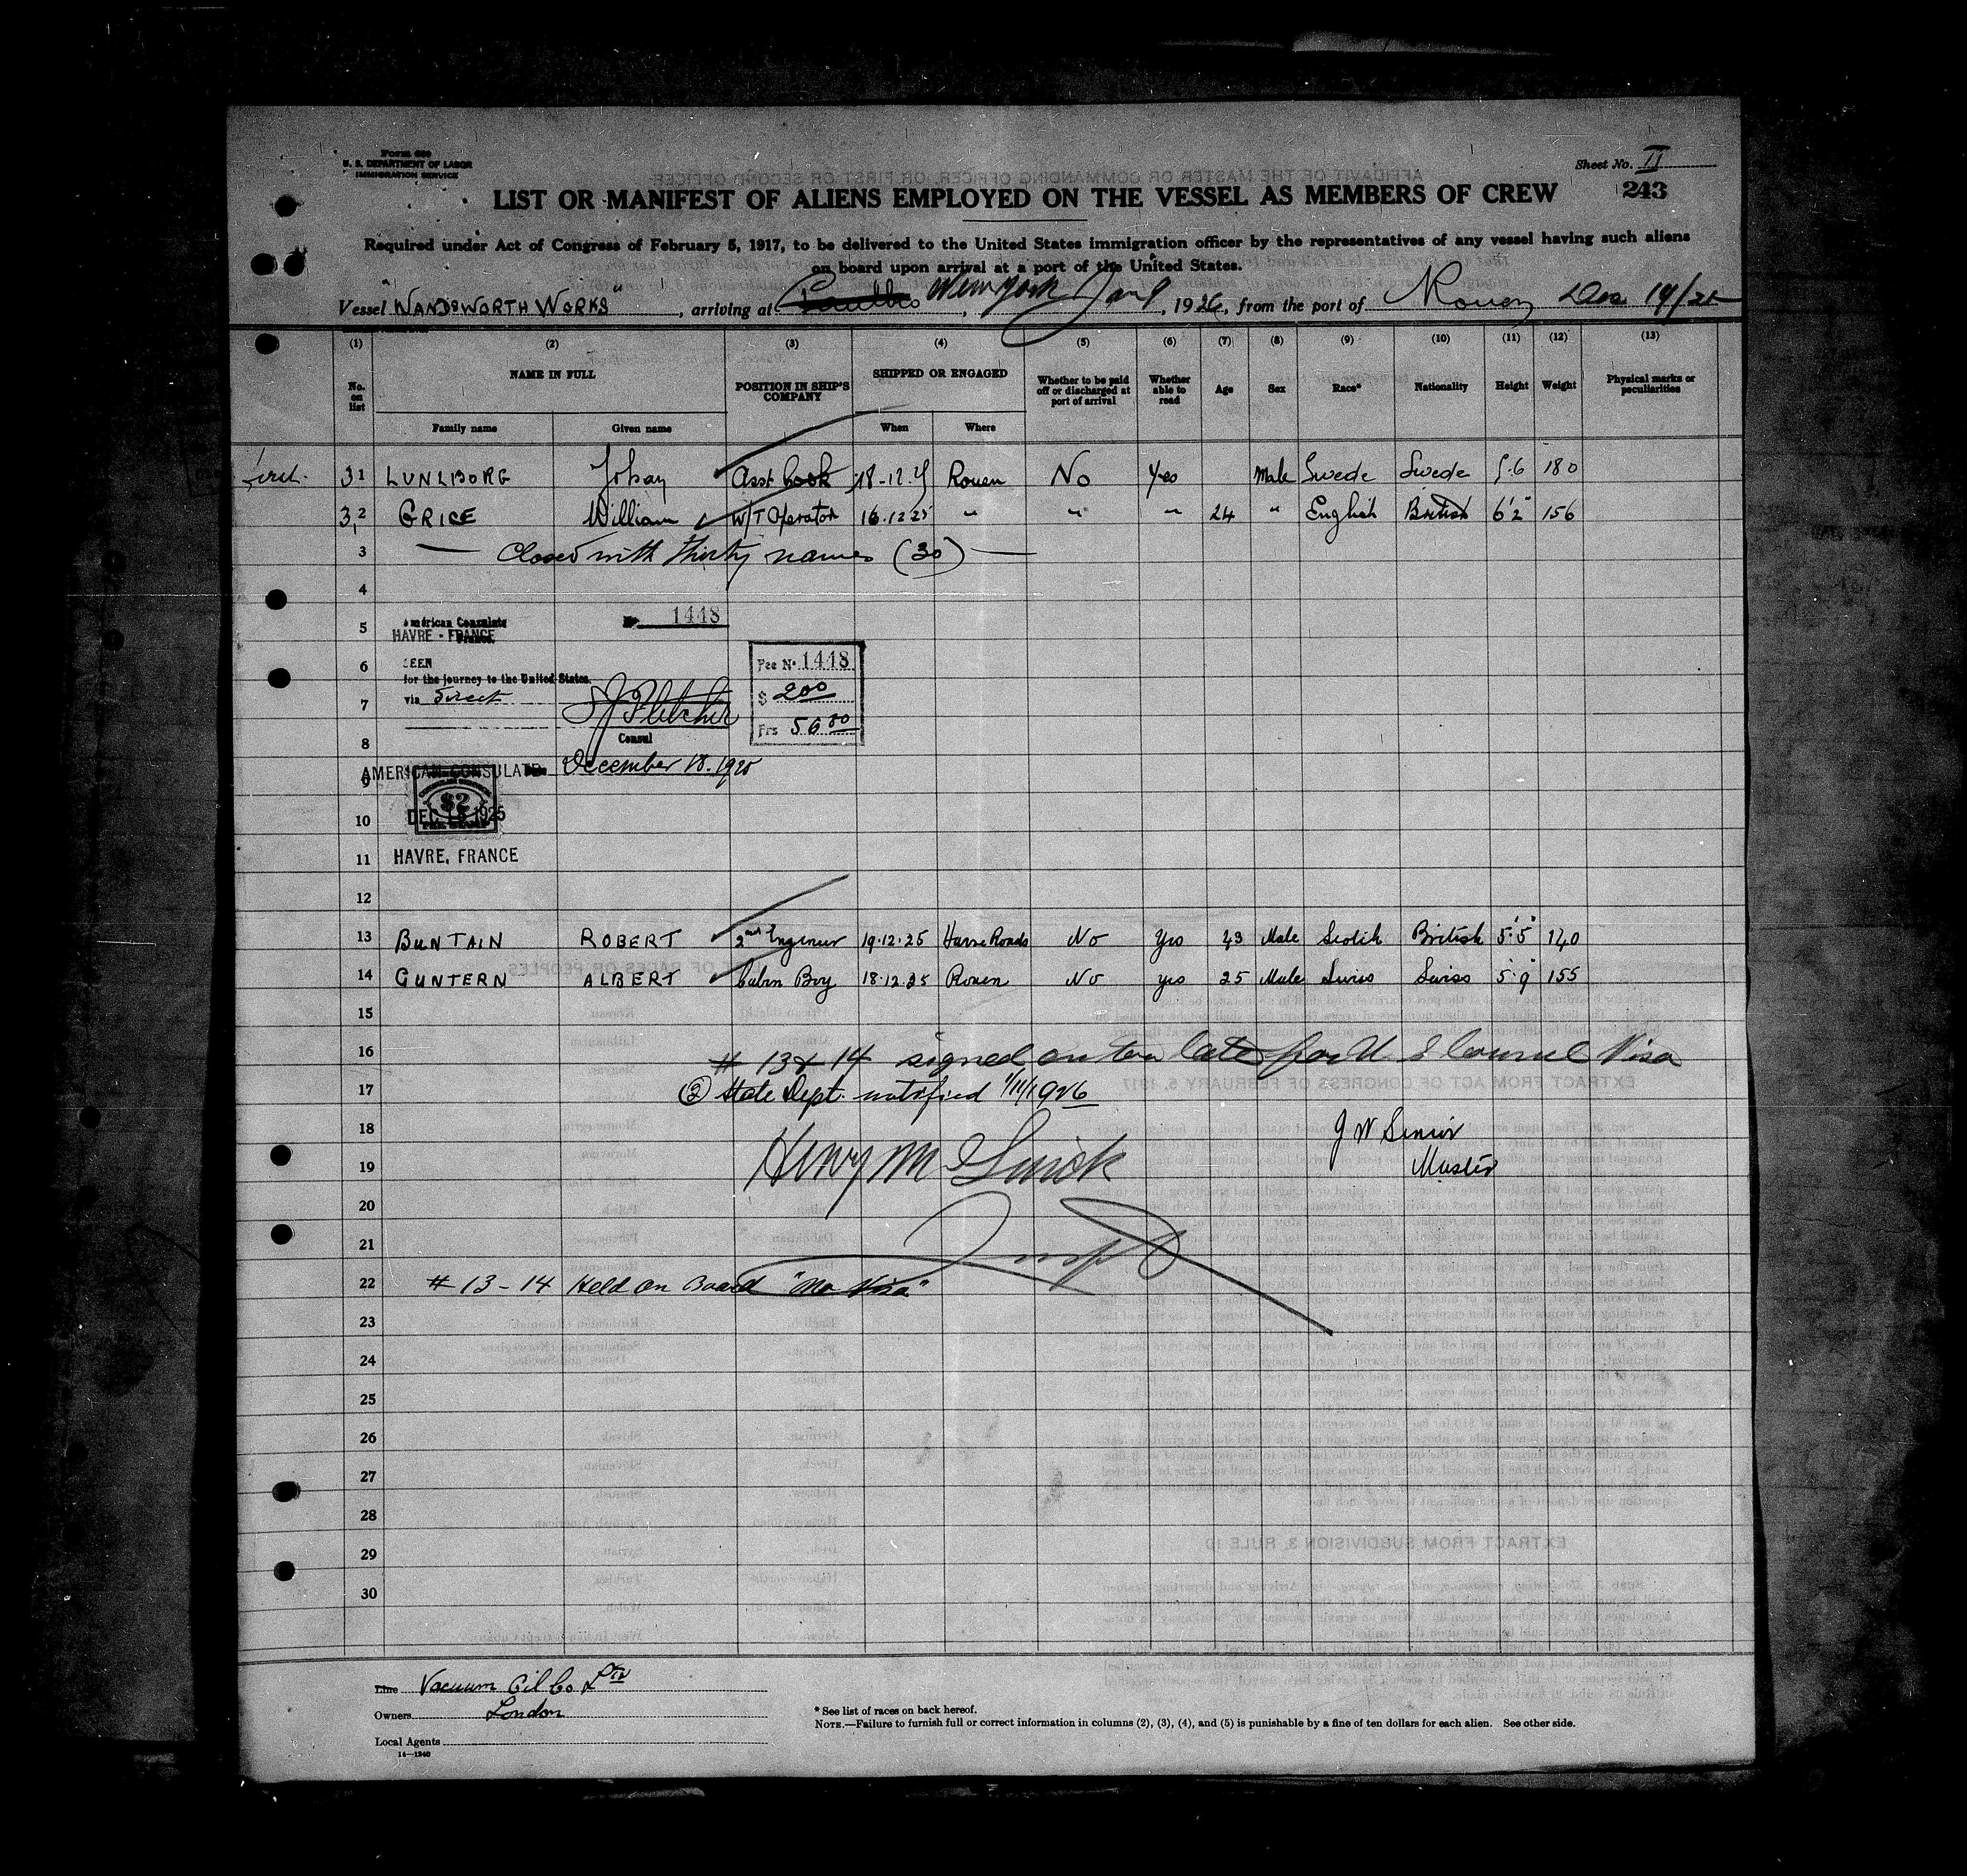 Form 680
U. S. DEPARTMENT OF LABOR
IMMIGRATION SERVICE
Sheet No. II
LIST OR MANIFEST OF ALIENS EMPLOYED ON THE VESSEL AS MEMBERS OF CREW
243
Required under Act of Congress of February 5, 1917, to be delivered to the United States immigration officer by the representatives of any vessel having such aliens
on board upon arrival at a port of the United States.
Vessel "WANDSWORTH WORKS", arriving at New York, Jan 9, 1926, from the port of Rouen Dec 19/25
(1) (2) (3) (4) (5) (6) (7) (8) (9) (10) (11) (12) (13)
No. on list NAME IN FULL POSITION IN SHIP'S COMPANY SHIPPED OR ENGAGED Whether to be paid off or discharged at port of arrival Whether able to read Age Sex Race* Nationality Height Weight Physical marks or peculiarities
Family name Given name When Where
31 LUNLBORG Johan Asst Cook 18-12-25 Rouen No Yes Male Swede Swede 5.6 180
32 GRICE William W/T Operator 16.12.25 " " " 24 " English British 6'2" 156
3 — Closed with thirty names (30) —
4
5 American Consulate 1448
HAVRE - FRANCE
6 SEEN Fee No. 1448
for the journey to the United States.
7 via Direct J Fletcher $ 2.00
Frs 56.00
8 Consul
9 AMERICAN CONSULATE December 18. 1925
$2
10 DEC 18 1925
FEE STAMP
11 HAVRE, FRANCE
12
13 BUNTAIN ROBERT 2nd Engineer 19.12.25 Havre Roads No Yes 43 Male Scotch British 5'5" 140
14 GUNTERN ALBERT Cabin Boy 18.12.25 Rouen No yes 25 Male Swiss Swiss 5'9" 155
15
16 # 13 & 14 signed on too late for U S Counsel Visa
17 (2) State Dept. notified 1/11/1926
18 J W Senior
19 Henry M Master
20
21 Insp
22 # 13 - 14 Held On Board "No Visa"
23
24
25
26
27
28
29
30
Line Vacuum Oil Co Ltd
Owners London
Local Agents
14—1240
* See list of races on back hereof.
NOTE.—Failure to furnish full or correct information in columns (2), (3), (4), and (5) is punishable by a fine of ten dollars for each alien. See other side.